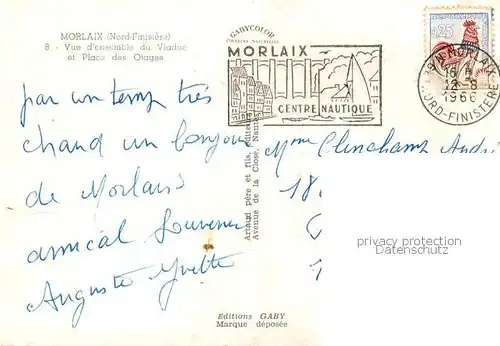 MORLAIX (Nord-Finistère)
8. - Vue d'ensemble du Viaduc
et Place des Otages
GABYCOLOR
COULEURS NATURELLES
MORLAIX
CENTRE NAUTIQUE
0,25
MORLAIX
16 H
12-8
1966
NORD-FINISTERE
par un temps très
chaud un bonjour
de Morlaix
amical Souvenir
Auguste Yvette
Artaud père et fils, éditeurs
Avenue de la Close, Nantes
Mme Clinchamp André
18
privacy protection
Datenschutz
Editions GABY
Marque déposée